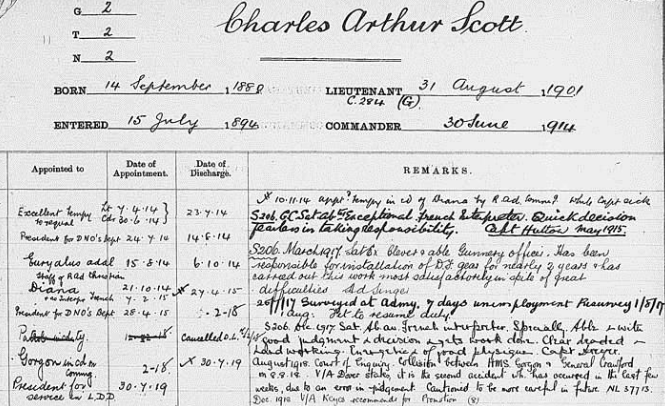 G 2
T 2
N 2
Charles Arthur Scott.
BORN 14 September 1880
LIEUTENANT 31 August 1901
C.284 (G)
ENTERED 15 July 1894
COMMANDER 30 June 1914
Appointed to
Date of Appointment.
Date of Discharge.
REMARKS.
10.11.14 appd tempy in cd of Diana by R Ad Comm. while Capt sick
Excellent tempy Lt 7.4.14
to requal Cdr 30.6.14 23.7.14
S206. GC Sat abt Exceptional. French Interpreter. Quick decision
fearless in taking responsibility. Capt Hutton May 1915.
President for DNO's Dept 24.7.14 14.8.14
S206. March 1917. Sat Ex Clever & able Gunnery officer. Has been
Euryalus addl 15.8.14 6.10.14
responsible for installation of D.F. gear for nearly 2 years & has
staff of R Ad Christian
carried out this work most satisfactorily in spite of great
Diana 21.10.14
difficulties Ad Singer
as Interpr French 7.2.15 27.4.15
25/7/17 Surveyed at Admy, 7 days unemployment Resurvey 1/8/17
President for DNO's Dept 28.4.15 -2-18
Aug: Fit to resume duty.
S206. Dec 1917 Sat. Ab an French interpreter. Specially Able & with
Cancelled
good judgment & decision & gets work done. Clear headed &
hard working. Energetic & of good physique. Capt Dreyer.
Gorgon in cd on
August 1918. Court of Enquiry. Collision between HMS. Gorgon & General Craufurd
commg. 2-18 30.4.19
on 8.8.18. V/A Dover states, it is the second accident wh. has occurred in the last few
President for 30.4.19
weeks, due to an error in judgement. Cautioned to be more careful in future NL 37713.
service in L.D.D.
Dec. 1918 V/A Keyes recommends for Promotion